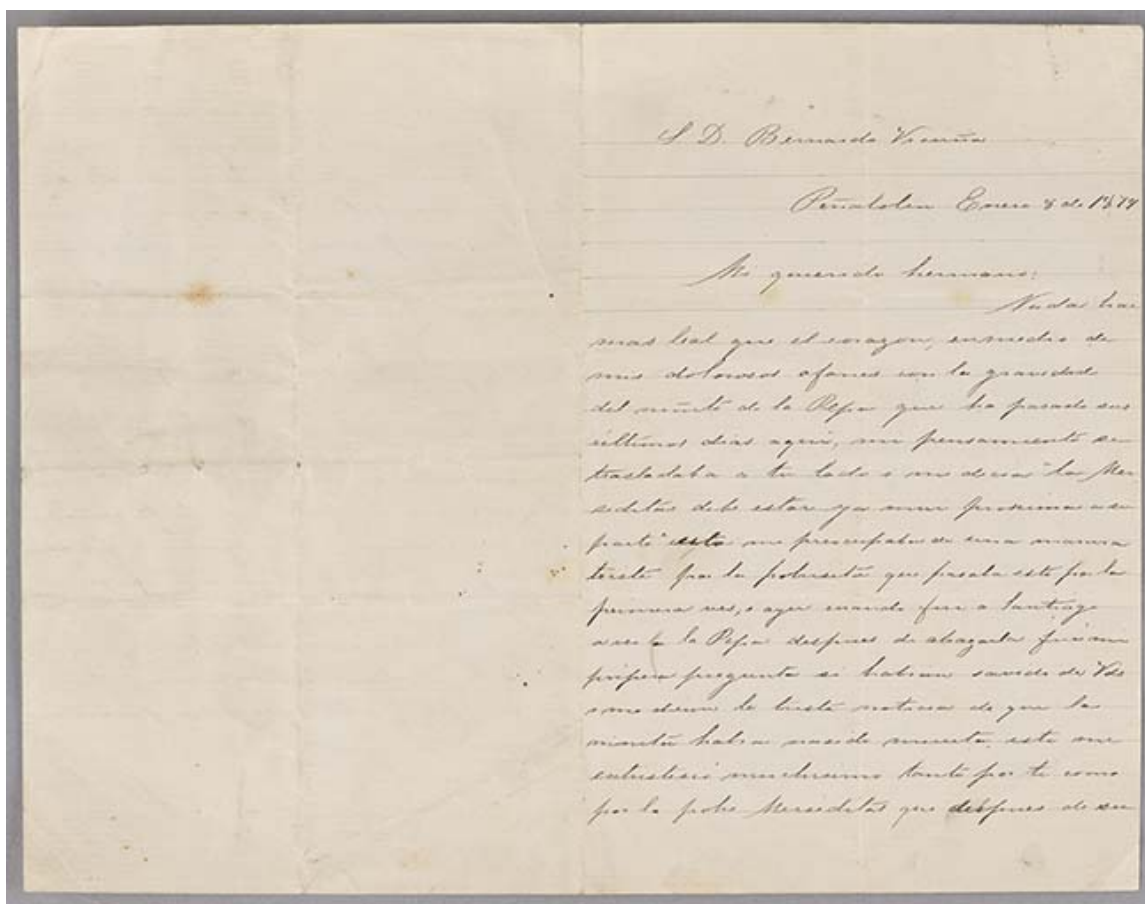 S. D. Bernardo Vicuña
Peñalolen Enero 8 de 1879
Mi querido hermano:
Nada hai
mas leal que el corazon, en medio de
mis dolorosos afanes con la gravedad
del niñito de la Pepa que ha pasado sus
ultimos dias aqui, mi pensamiento se
trasladaba a tu lado i me decia "la Mer
seditas debe estar ya mui prosima a su
parto" esto me preocupaba de una manera
triste por la pobresita que pasaba esto por la
primera ves, i ayer cuando fui a Santiago
a ver a la Pepa despues de abrazarla fué mi
primera pregunta si habian savido de Vds
i me dieron la triste noticia de que la
niñita habia nasido muerta, esto me
entristesió muchisimo tanto por ti como
por la pobre Merseditas que despues de su